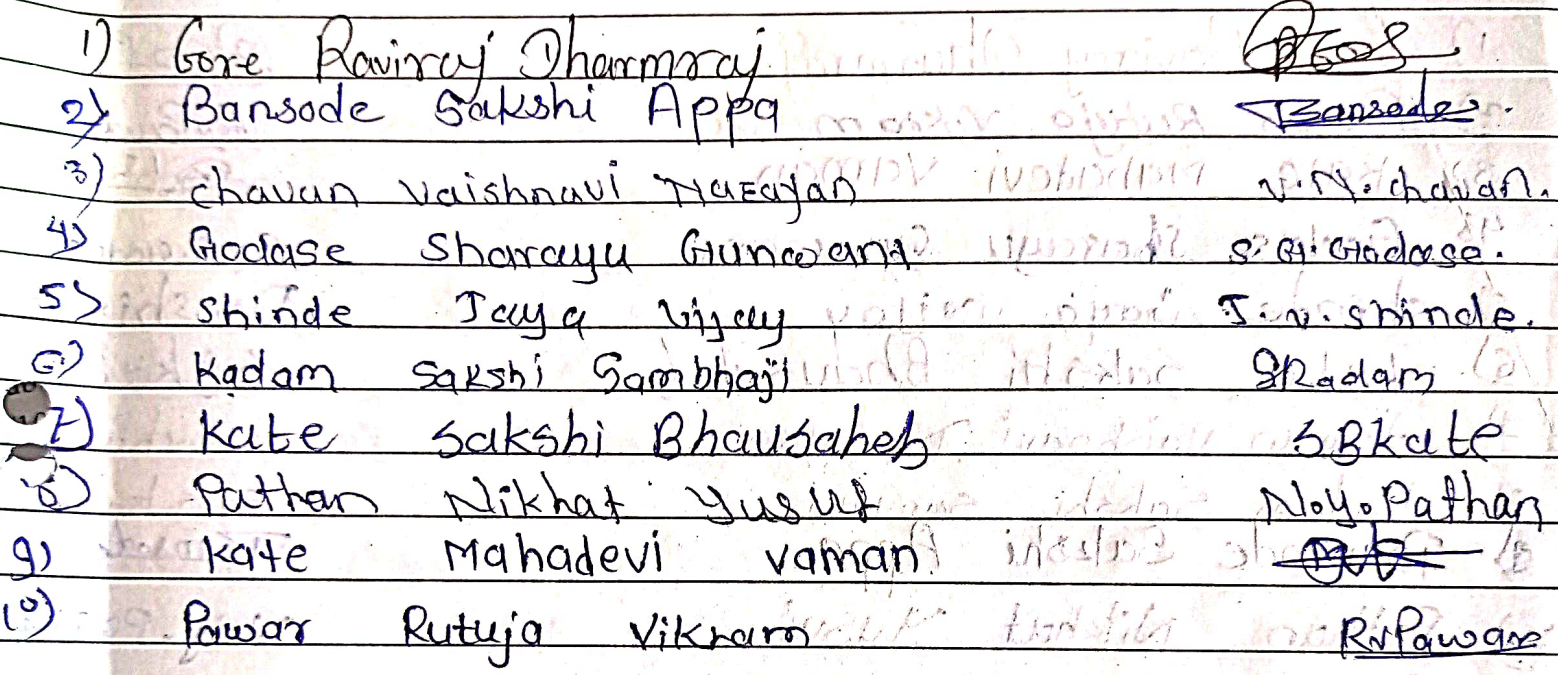 1) Gore Raviraj Dharmraj
2) Bansode Sakshi Appa Bansode.
3) chavan vaishnavi Narayan v.N.chavan.
4) Godase Sharayu Gunwant S.G.Godase.
5) Shinde Jaya vijay J.v.shinde.
6) Kadam Sakshi Sambhaji SKadam
7) Kate Sakshi Bhausaheb SBkate
8) Pathan Nikhat Yusuf N.Y.Pathan
9) Kate Mahadevi vaman
10) Pawar Rutuja Vikram RvPawar